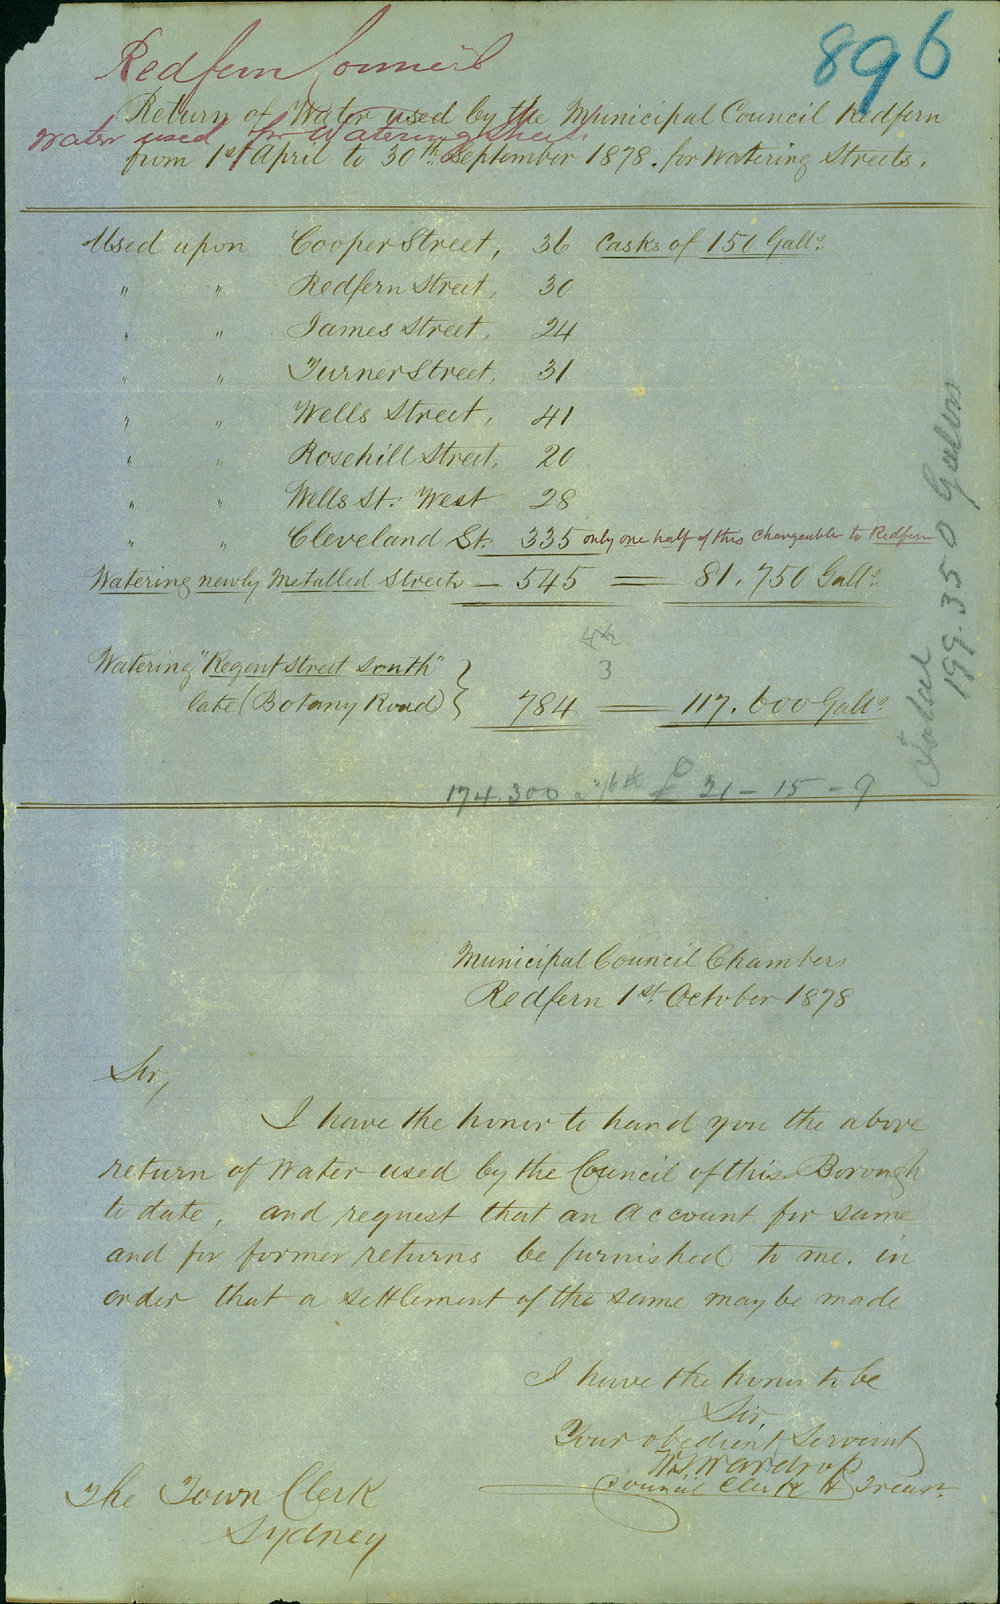 896
Redfern Council
Return of Water used by the Municipal Council Redfern
Water used for Watering Streets.
from 1st April to 30th September 1878. for Watering Streets.
Used upon Cooper Street, 36 Casks of 150 Galls.
" " Redfern Street, 30
" " James Street, 24
" " Turner Street, 31
" " Wells Street, 41
" " Rosehill Street, 20
" " Wells St: West 28
" " Cleveland St. 335 only one half of this chargeable to Redfern
Watering newly Metalled Streets — 545 = 81.750 Galls.
3
Watering "Regent Street South"
late (Botany Road) } 784 = 117.600 Galls.
Total 199.350 Gallons
174.300 £ 21 - 15 - 9
Municipal Council Chambers
Redfern 1st October 1878
Sir,
I have the honor to hand you the above
return of Water used by the Council of this Borough
to date, and request that an Account for same
and for former returns be furnished to me. in
order that a settlement of the same may be made
I have the honor to be
Sir
Your obedient Servant
Wardrop
Council Clerk & Treasr.
The Town Clerk
Sydney